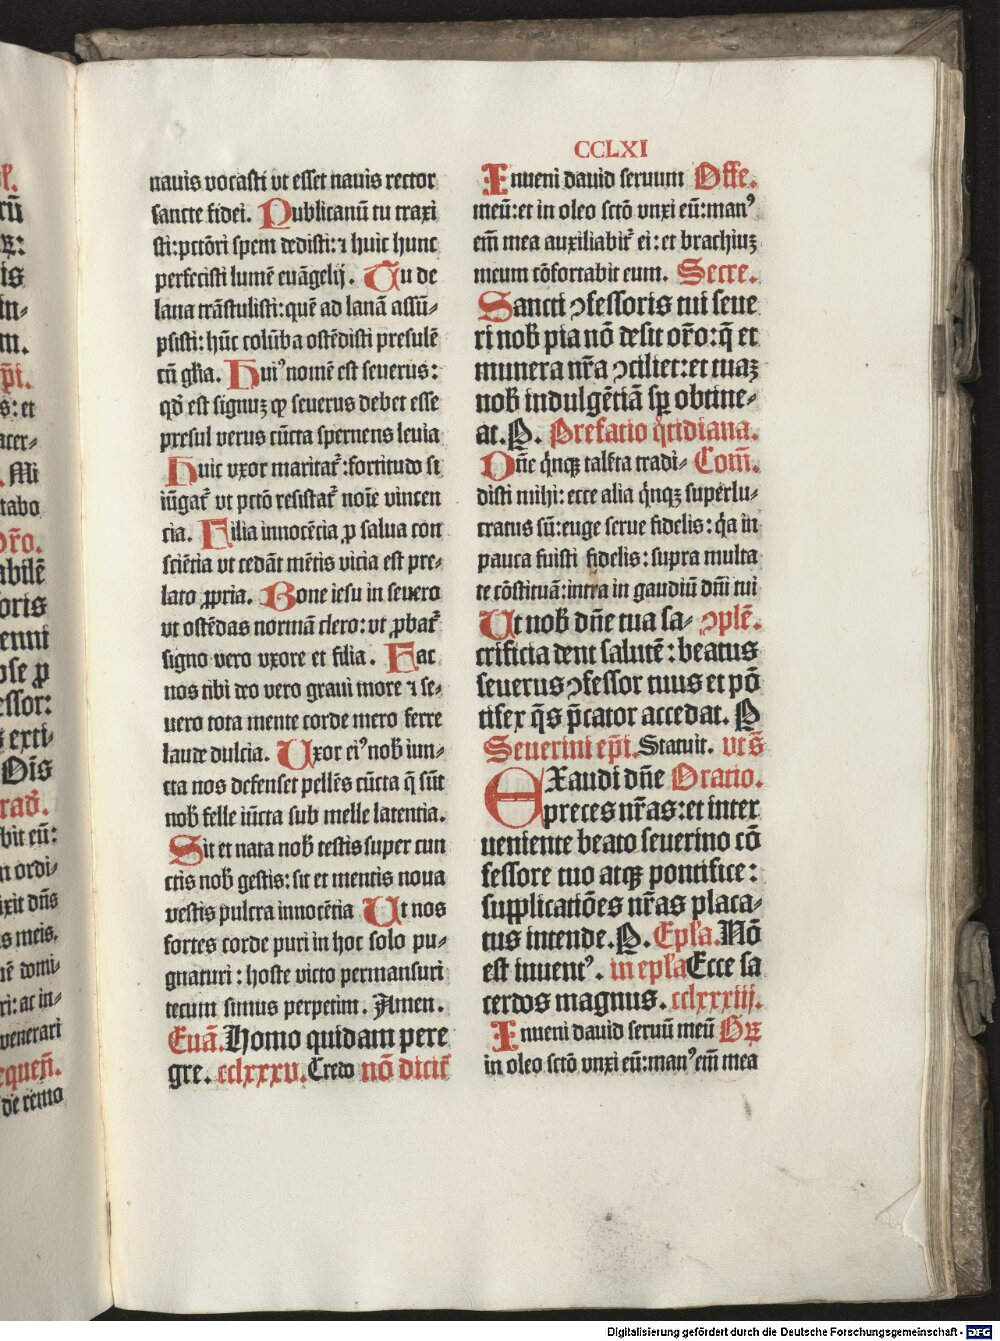 CCLXI
nauis vocasti vt esset nauis rector
sancte fidei. Publicanū tu traxi
sti: pctōri spem dedisti: ⁊ huic hunc
perfecisti lumē euāgelij. Tu de
lana trāstulisti: quē ad lanā assū-
psisti: hūc colūba ostēdisti presulē
cū gl̄ia. Huiꝰ nomē est seuerus:
qd̄ est signuꝫ ꝙ seuerus debet esse
presul verus cūcta spernens leuia
Huic vxor maritat᷑: fortitudo si
iūgat᷑ vt pctō resistat᷑ noīe vincen
cia. Filia innocēcia ꝑ salua con
sciētia vt cedāt mētis vicia est pre-
lato ꝓpria. Bone iesu in seuero
vt ostēdas normā clero: vt ꝓbat᷑
signo vero vxore et filia. Fac
nos tibi deo vero graui more ⁊ se-
uero tota mente corde mero ferre
laude dulcia. Uxor eiꝰ nob̄ iun-
cta nos defenset pellēs cūcta q̄ sūt
nob̄ felle iūcta sub melle latentia.
Sit et nata nob̄ testis super cun
ctis nob̄ gestis: sit et mentis noua
vestis pulcra innocētia Ut nos
fortes corde puri in hoc solo pu-
gnaturi: hoste victo permansuri
tecum simus perpetim. Amen.
Euā. Homo quidam pere
gre. cclxxxv. Credo nō dicit᷑
Inueni dauid seruum Offe.
meū: et in oleo sctō vnxi eū: manꝰ
em̄ mea auxiliabit᷑ ei: et brachiuꝫ
meum cōfortabit eum. Secre.
Sancti ꝯfessoris tui seue
ri nob̄ pia nō desit or̄o: q̄ et
munera nr̄a ꝯciliet: et tuaꝫ
nob̄ indulgētiā sꝑ obtine-
at. P. Prefatio q̇tidiana.
Dn̄e q̇nqꝫ talēta tradi- Com̄.
disti mihi: ecce alia q̇nqꝫ superlu-
cratus sū: euge serue fidelis: q̇a in
pauca fuisti fidelis: supra multa
te cōstituā: intra in gaudiū dn̄i tui
Ut nob̄ dn̄e tua sa- ꝯplē.
crificia dent salutē: beatus
seuerus ꝯfessor tuus et pō
tifex q̄s p̄cator accedat. P
Seuerini ep̄i. Statuit. vt s̄
EXaudi dn̄e Oratio.
preces nr̄as: et inter
ueniente beato seuerino cō
fessore tuo atqꝫ pontifice:
supplicatiōes nr̄as placa-
tus intende. P. Epl̄a. Nō
est inuentꝰ. in epl̄a Ecce sa
cerdos magnus. cclxxxiij.
Inueni dauid seruū meū Gꝛ̄
in oleo sctō vnxi eū: manꝰ em̄ mea
Digitalisierung gefördert durch die Deutsche Forschungsgemeinschaft - DFG